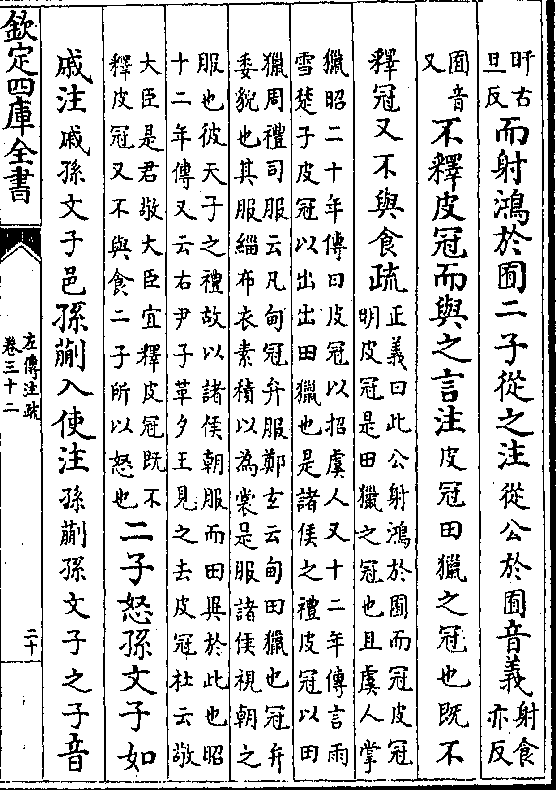 旰古
旦反
而射鴻於囿二子從之注從公於囿音義
射食
亦反
囿音
又
不釋皮冠而與之言注皮冠田獵之冠也既不
釋冠又不與食疏
正義曰此公射鴻於囿而冠皮冠
明皮冠是田獵之冠也且虞人掌
獵昭二十年傳曰皮冠以招虞人又十二年傳言雨
雪楚子皮冠以出出田獵也是諸侯之禮皮冠以田
獵周禮司服云凡甸冠弁服鄭玄云甸田獵也冠弁
委貌也其服緇布衣素積以為裳是服諸侯視朝之
服也彼天子之禮故以諸侯朝服而田異於此也昭
十二年傳又云右尹子革夕王見之去皮冠杜云敬
大臣是君敬大臣宜釋皮冠既不
釋皮冠又不與食二子所以怒也
二子怒孫文子如
戚注戚孫文子邑孫蒯入使注孫蒯孫文子之子音
欽定四庫全書
左傳注疏
卷三十二
二十